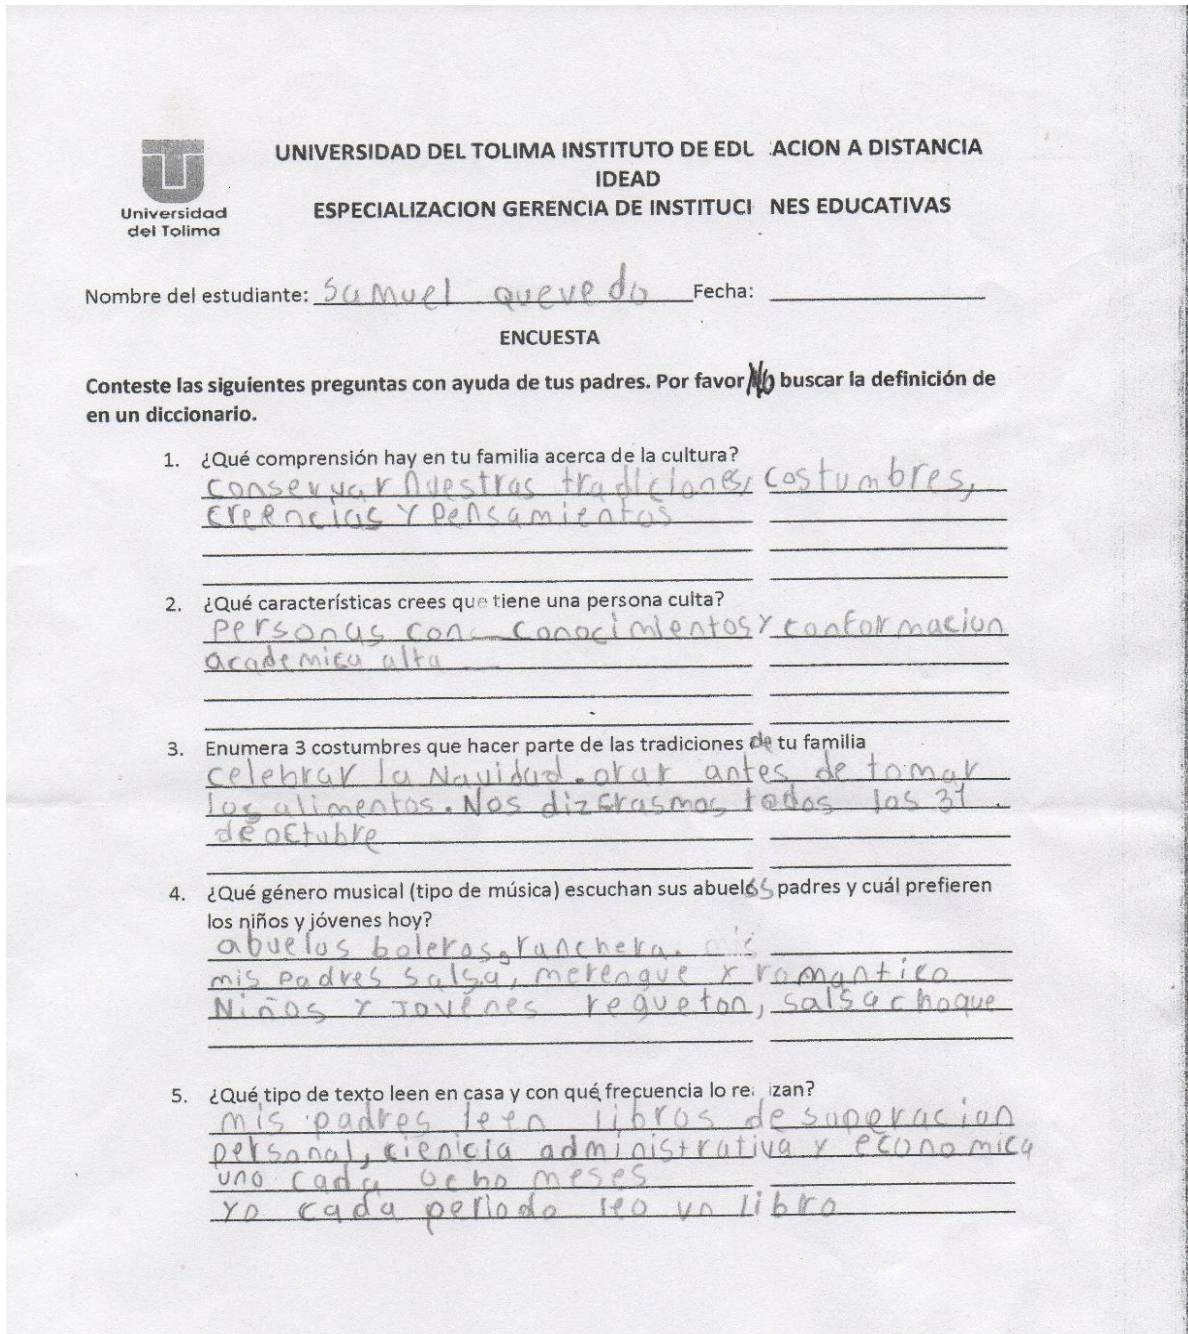 UNIVERSIDAD DEL TOLIMA INSTITUTO DE EDU ACION A DISTANCIA
IDEAD
ESPECIALIZACION GERENCIA DE INSTITUCI NES EDUCATIVAS
Universidad
del Tolima
Nombre del estudiante: Samuel quevedo Fecha:
ENCUESTA
Conteste las siguientes preguntas con ayuda de tus padres. Por favor No buscar la definición de
en un diccionario.
1. ¿Qué comprensión hay en tu familia acerca de la cultura?
conservar nuestras tradiciones, costumbres,
creencias y pensamientos
2. ¿Qué características crees que tiene una persona culta?
personas con conocimientos y con formacion
academica alta
3. Enumera 3 costumbres que hacer parte de las tradiciones de tu familia
celebrar la Navidad. orar antes de tomar
los alimentos. Nos dizfrasmos todos los 31.
de octubre
4. ¿Qué género musical (tipo de música) escuchan sus abuelos padres y cuál prefieren
los niños y jóvenes hoy?
abuelos boleros, ranchera. mis
mis padres salsa, merengue y romantico
Niños y Jovenes regueton, salsa choque
5. ¿Qué tipo de texto leen en casa y con qué frecuencia lo re izan?
mis padres leen libros de superacion
personal, cienicia administrativa y economica
uno cada ocho meses
yo cada periodo leo un libro